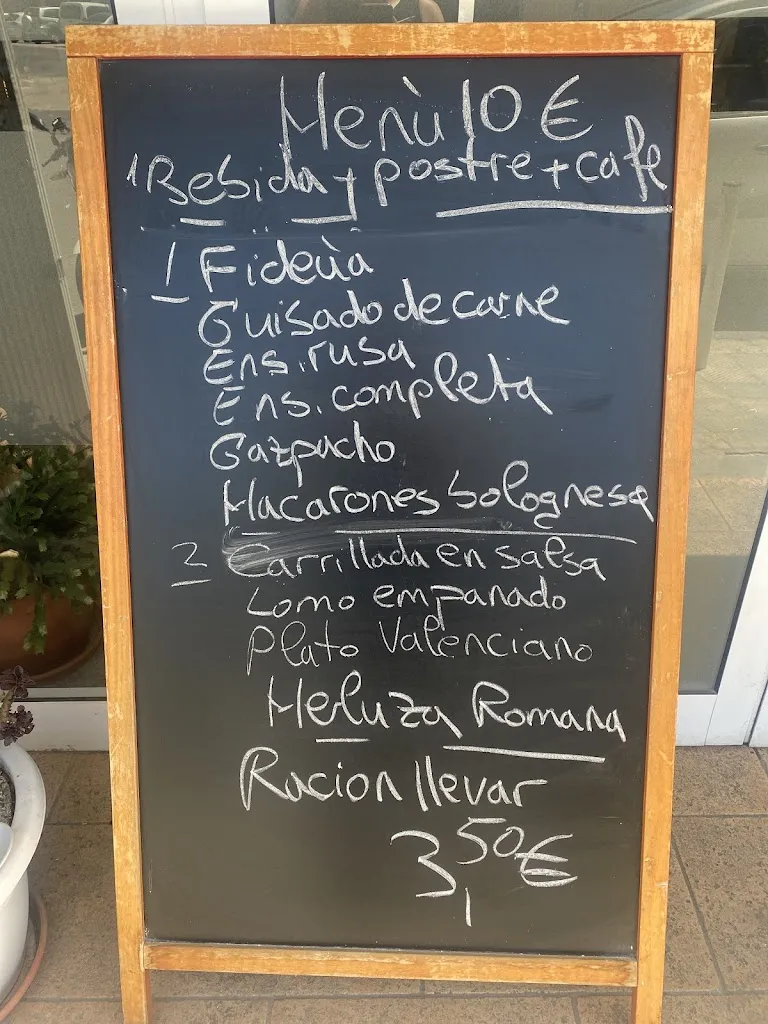 Menù 10 €
1 Bebida y postre + cafe
1 Fideùa
Guisado de carne
Ens. rusa
Ens. completa
Gazpacho
Macarones bolognesa
2 Carrillada en salsa
Lomo empanado
Plato Valenciano
Merluza Romana
Racion llevar
3,50 €